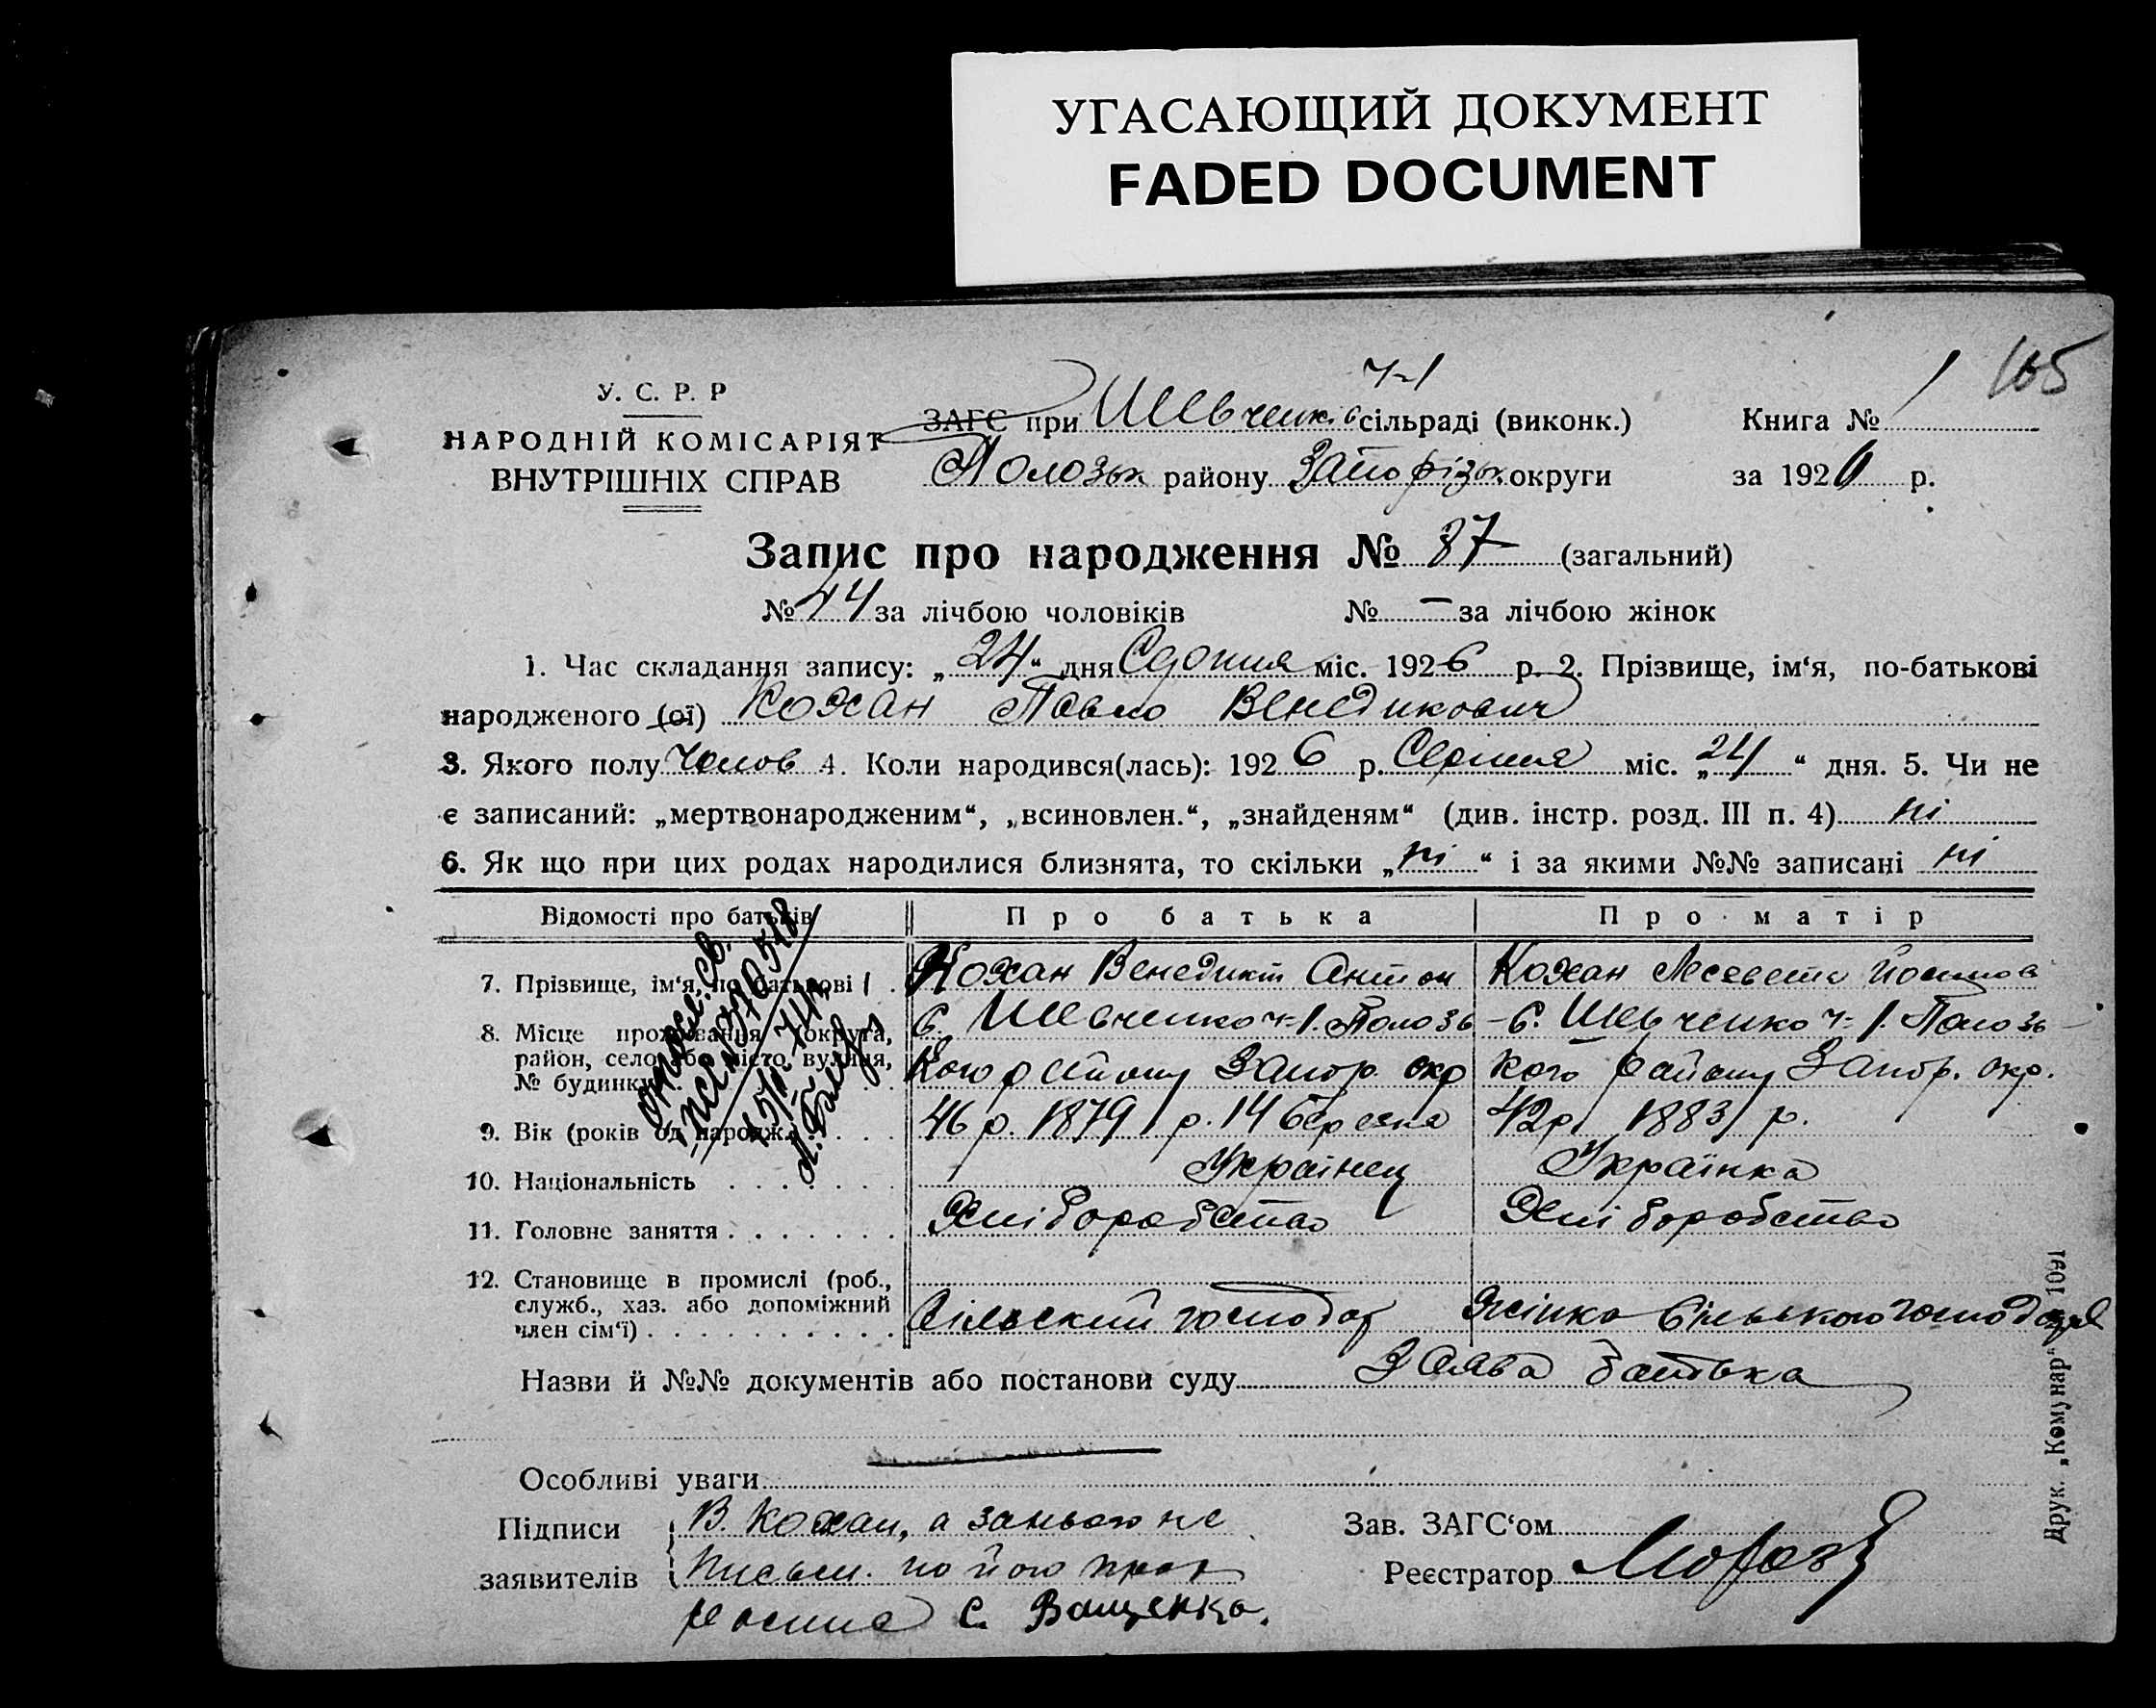 УГАСАЮЩИЙ ДОКУМЕНТ
FADED DOCUMENT
165
У. С. Р. Р
НАРОДНІЙ КОМІСАРІЯТ
ВНУТРІШНІХ СПРАВ
ч-1
ЗАГС при Шевченків сільраді (виконк.)
Полозьк району Запорізьк округи
Книга № 1
за 1926 р.
Запис про народження № 87 (загальний)
№ 44 за лічбою чоловіків № — за лічбою жінок
1. Час складання запису: „24“ дня Серпня міс. 1926 р. 2. Прізвище, ім‘я, по-батькові
народженого (ої) Кохан Павло Венедикович
3. Якого полу Чолов 4. Коли народився(лась): 1926 р. Серпня міс. „24“ дня. 5. Чи не
є записаний: „мертвонародженим“, „всиновлен.“, „знайденям“ (див. інстр. розд. III п. 4) ні
6. Як що при цих родах народилися близнята, то скільки „ні“ і за якими №№ записані ні
Відомості про батьків Про батька Про матір
7. Прізвище, ім‘я, по батькові Кохан Венедикт Антон Кохан Лисавета Йосипов
8. Місце проживання (округа,
район, село або місто, вулиця,
№ будинку)
с. Шевченко ч-1. Полозь
кого району Запор. окр
с. Шевченко ч-1. Полозь
кого району Запор. окр.
9. Вік (років од народж.) 46 р. 1879 р. 14 березня 42 р. 1883 р.
10. Національність Українец Українка
11. Головне заняття Хліборобство Хліборобство
12. Становище в промислі (роб.,
служб., хаз. або допоміжний
член сім‘ї)
Сільский господар Жінка Сільського господаря
Назви й №№ документів або постанови суду Заява батька
Особливі уваги
Підписи
заявителів
В. Кохан, а за нього не
письм. по його прох
росписа С. Ващенко.
Зав. ЗАГС‘ом
Реєстратор Мороз
Друк. „Комунар“ 1091